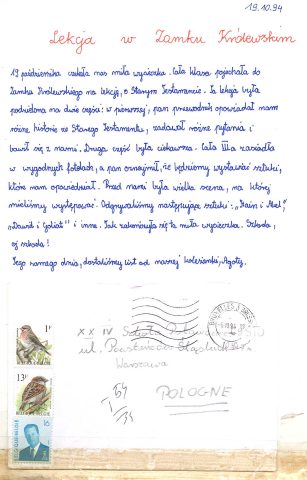 19.10.94
Lekcja w Zamku Królewskim
19 października czekała nas miła wycieczka. Cała klasa pojechała do
Zamku Królewskiego na lekcję, o Starym Testamencie. Ta lekcja była
podzielona na dwie części: w pierwszej, pan przewodnik opowiadał nam
różne, historie ze Starego Testamentu, zadawał różne pytania i
bawił się z nami. Druga część była ciekawsza. Cała IIIa zasiadła
w wygodnych fotelach, a pan oznajmił, że będziemy wystawiać sztuki,
które nam opowiedział. Przed nami była wielka scena, na której
mieliśmy występować. Odgrywaliśmy następujące sztuki: „Kain i Abel",
„Dawid i Goliat" i inne. Tak zakończyła się ta miła wycieczka. Szkoda,
oj szkoda!
Tego samego dnia, dostaliśmy list od naszej koleżanki, Agaty.
1F
13F
BELGIQUE
16
XXIV Szkoła
ul.
Warszawa
POLOGNE